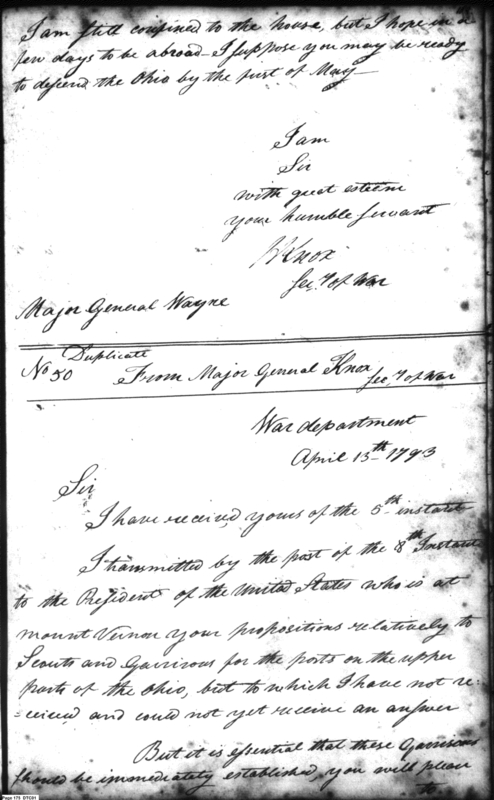 I am still confined to the house, but I hope in a
few days to be abroad - I suppose you may be ready
to descend the Ohio by the first of May -
I am
Sir
with great esteem
your humble servant
HKnox
Secy of War
Major General Wayne
Duplicate
No 50 From Major General Knox Secy of War
War department
April 13th 1793
Sir
I have received yours of the 5th instant
I transmitted by the post of the 8th Instant
to the President of the United States who is at
mount Vernon your propositions relatively to
Scouts and Garrisons for the posts on the upper
parts of the Ohio, but to which I have not re-
=ceived and could not yet receive an answer
But it is essential that these Garrisons
should be immediately established, you will please
to
Page 175 DTC01